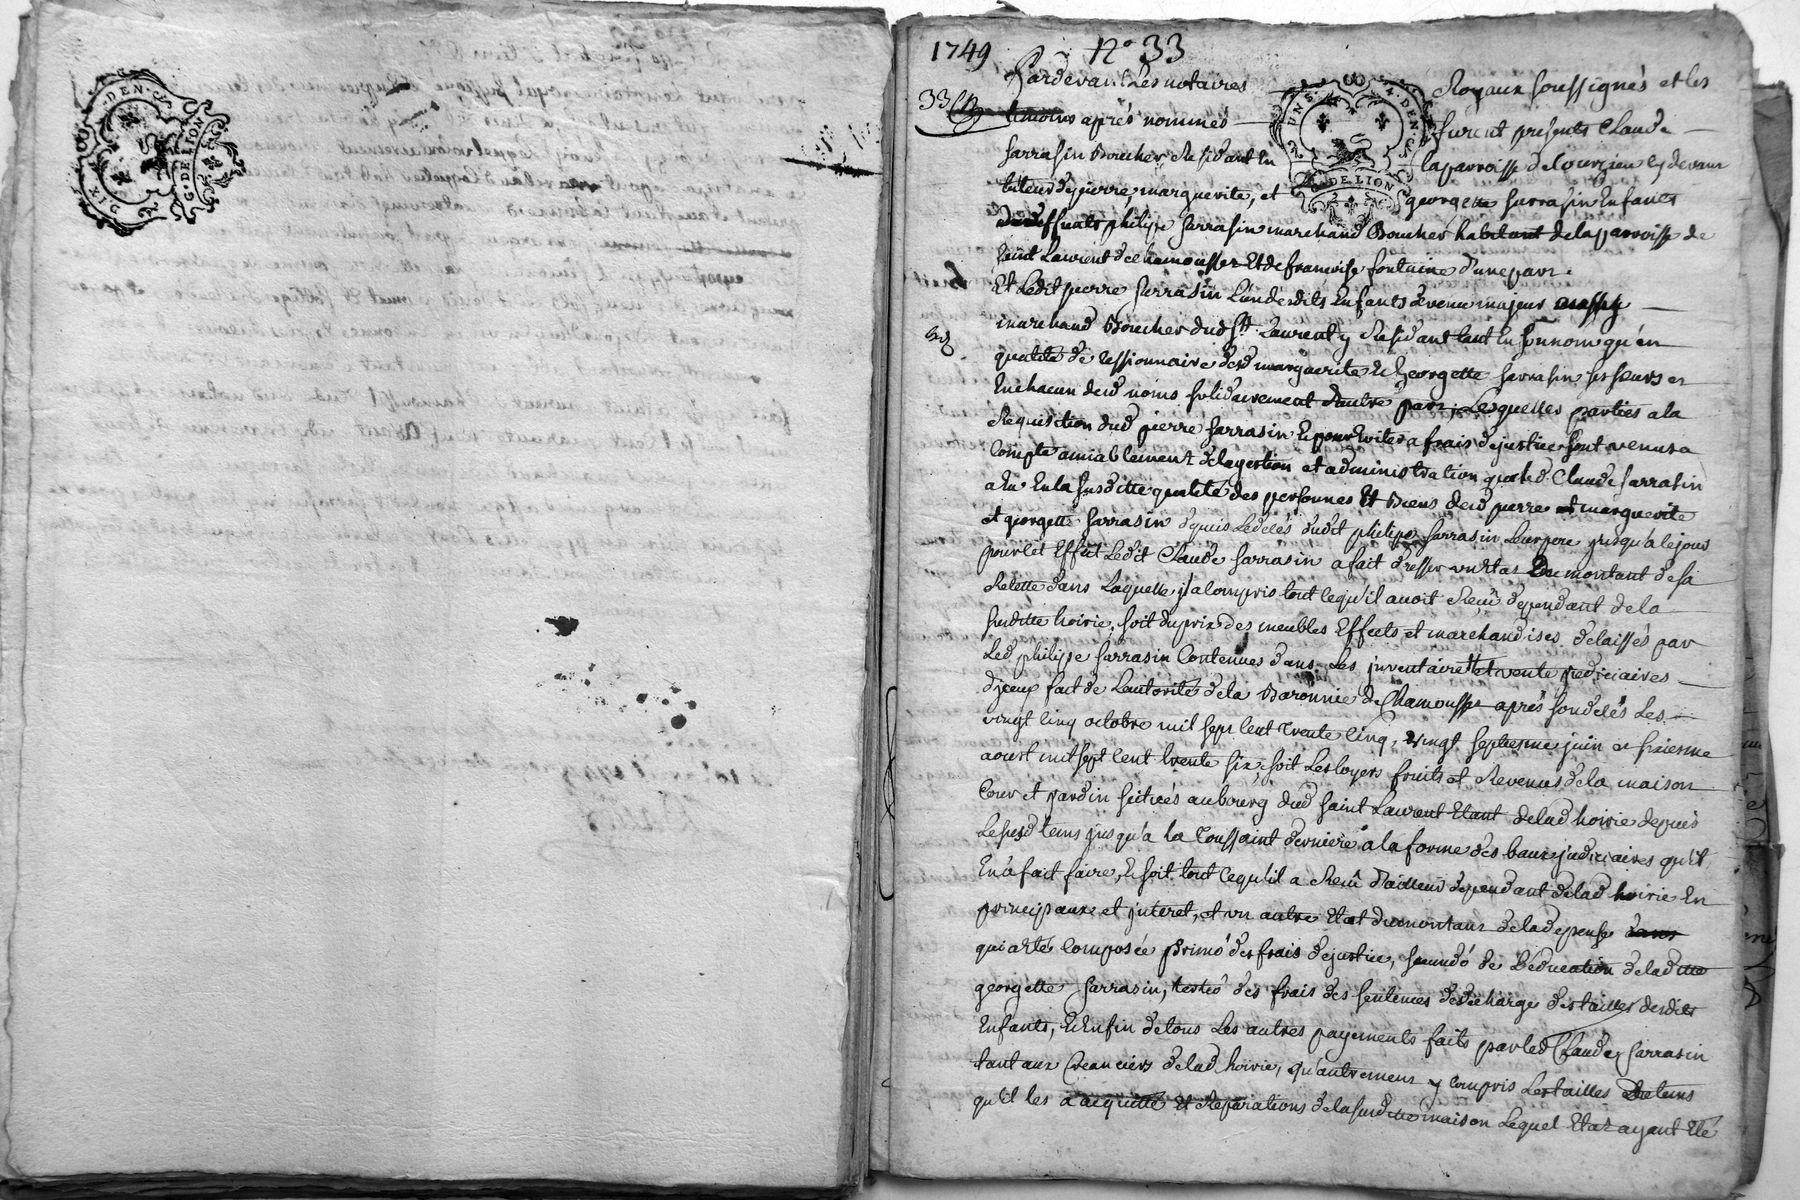 DIX DEN.
G. DE LION
1749 N° 33
Pardevant Les notaires Royaux soussignés et les
33
temoins aprés nommés furent presents Claude
UN S. 4. DEN.
G. DE LION
Sarrasin Boucher Residant en la parroisse de Courzieu cy devant
tuteur de pierre, marguerite, et georgette Sarrasin Enfants
deffunts philipe Sarrasin marchand Boucher habitant de la parroisse de
saint Laurent de chamousset Et de francoise fontaine d'une part.
Et Ledit pierre Sarrasin L'un desdits Enfants devenu majeur aussy
marchand Boucher dud St. Laurent y Residant tant En son nom qu'en
qualité de cessionnaire desd marguerite Et Georgette Sarrasin ses seurs et
En chacun desd noms solidairement d'autre part, Lesquelles parties a la
Requisition dud pierre Sarrasin Et pour Eviter a frais de justice sont venus a
Compte amiablement de la gestion et administration que led. Claude Sarrasin
a Eu En la susditte qualité des personnes Et Biens desd pierre et marguerite
et georgette Sarrasin depuis Le deces dudit philipe Sarrasin Leur pere jusqu'a ce jour
pour cet Effet Ledit Claude Sarrasin a fait dresser un Etat Du montant de sa
Recette dans Laquelle il a Compris tout ce qu'il avoit Reçu dependant de la
susditte hoirie, soit du prix des meubles Effects et marchandises delaissés par
Led philipe Sarrasin Contenues dans Les jnventaire Et vente judiciaires
d'jceux fait de Lautorité de la Baronnie de Chamousset aprés son deces Les
vingt Cinq octobre mil sept Cent trente Cinq, vingt septiesme juin et sixiesme
aoust mil sept Cent trente six, soit Les loyers fruits et Revenus de la maison
Cour et jardin scitués au bourg dud saint Laurent Etant de lad hoirie depuis
Le susd tems jusqu'a la Toussaint derniere a la forme des baux judiciaires qu'il
En a fait faire, Et soit tout Ce qu'il a Reçû d'ailleurs dependant de lad hoirie En
principaux et jnteret, et un autre Etat du montant de la depense
qui a été Composée primò des frais de justice, secundò de L'education de laditte
georgette Sarrasin, tertiò des frais des sentences de decharge des tailles desdits
Enfants, Et Enfin de tous Les autres payements faits par led Claude Sarrasin
tant aux Creanciers de lad hoirie, qu'autrement y Compris Les tailles
qu'il les a acquitté Et Reparations de la susditte maison Lequel Etat ayant Eté